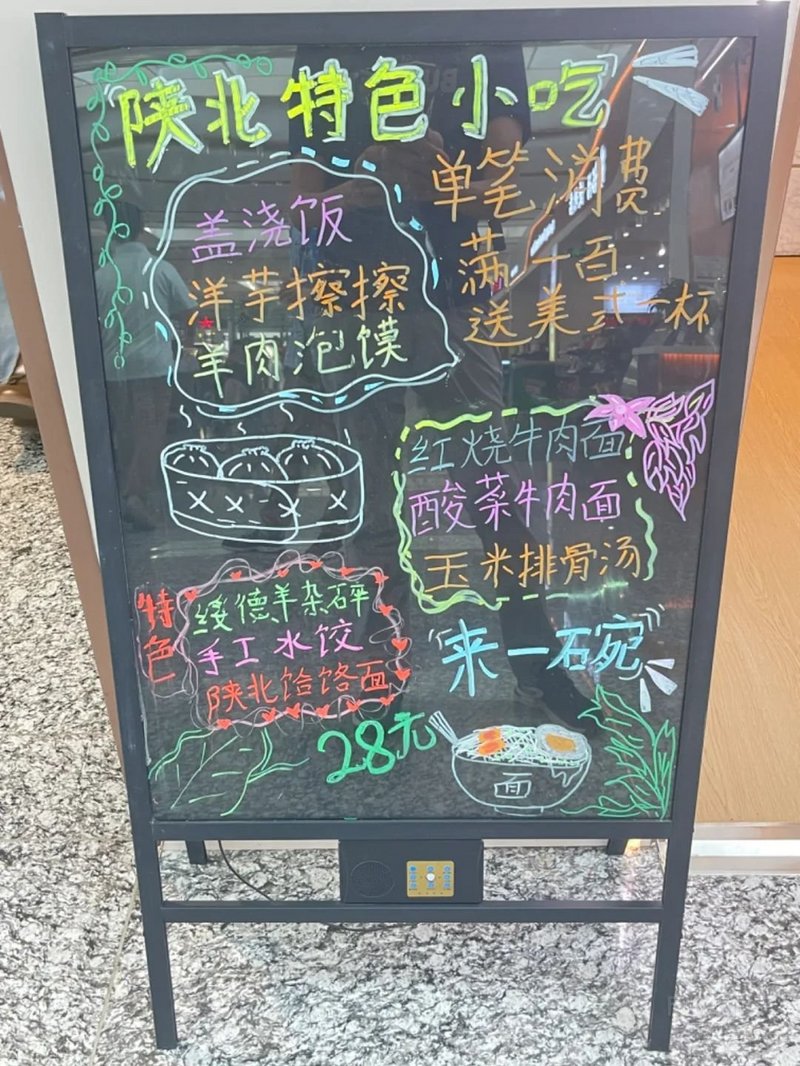 陕北特色小吃
盖浇饭
洋芋擦擦
羊肉泡馍
单笔消费
满一百
送美式一杯
红烧牛肉面
酸菜牛肉面
玉米排骨汤
特色
绥德羊杂碎
手工水饺
陕北饸饹面
28元
来一碗
面